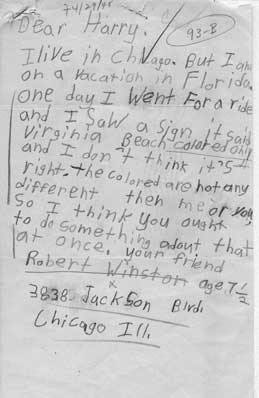 93-B
Dear Harry.
I live in Chicago. But I am
on a vacation in Florida.
one day I went For a ride
and I Saw a sign it said
Virginia Beach colored only
and I don't think it's
right. the colored are not any
different then me or you
So I think you ought
to do something about that
at once. your friend
Robert Winston age 7 1/2
3838 Jackson Blvd.
Chicago Ill.